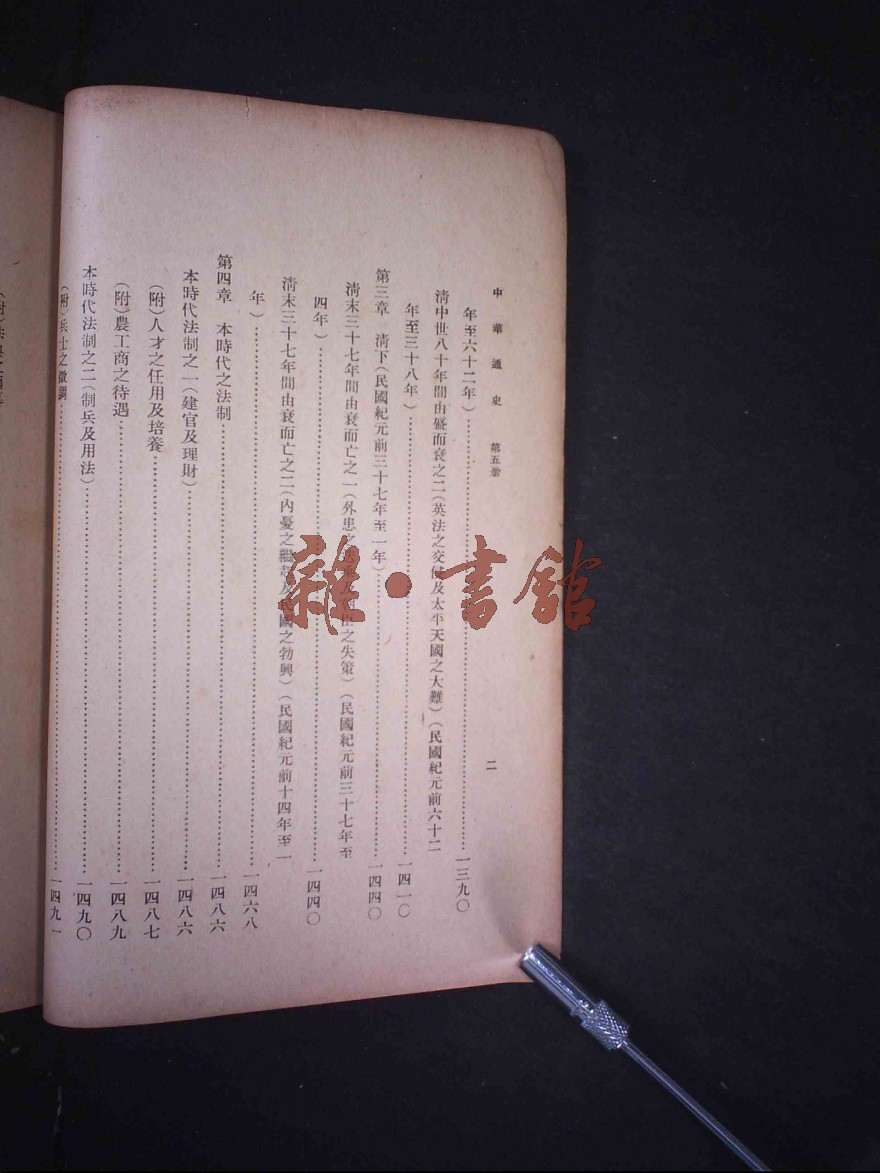 中華通史 第五册 二
年至六十二年）……一三九〇
清中世八十年間由盛而衰之二（英法之交侵及太平天國之大難）（民國紀元前六十二
年至三十八年）……一四一〇
第三章 清下（民國紀元前三十七年至一年）……一四四〇
清末三十七年間由衰而亡之一（外患之 之失策）（民國紀元前三十七年至
四年）……一四四〇
清末三十七年間由衰而亡之二（內憂之 及民國之勃興）（民國紀元前十四年至一
年）……一四六八
第四章 本時代之法制……一四八六
本時代法制之一（建官及理財）……一四八六
（附）人才之任用及培養……一四八七
（附）農工商之待遇……一四八九
本時代法制之二（制兵及用法）……一四九〇
（附）兵士之徵調……一四九一
雜·書館